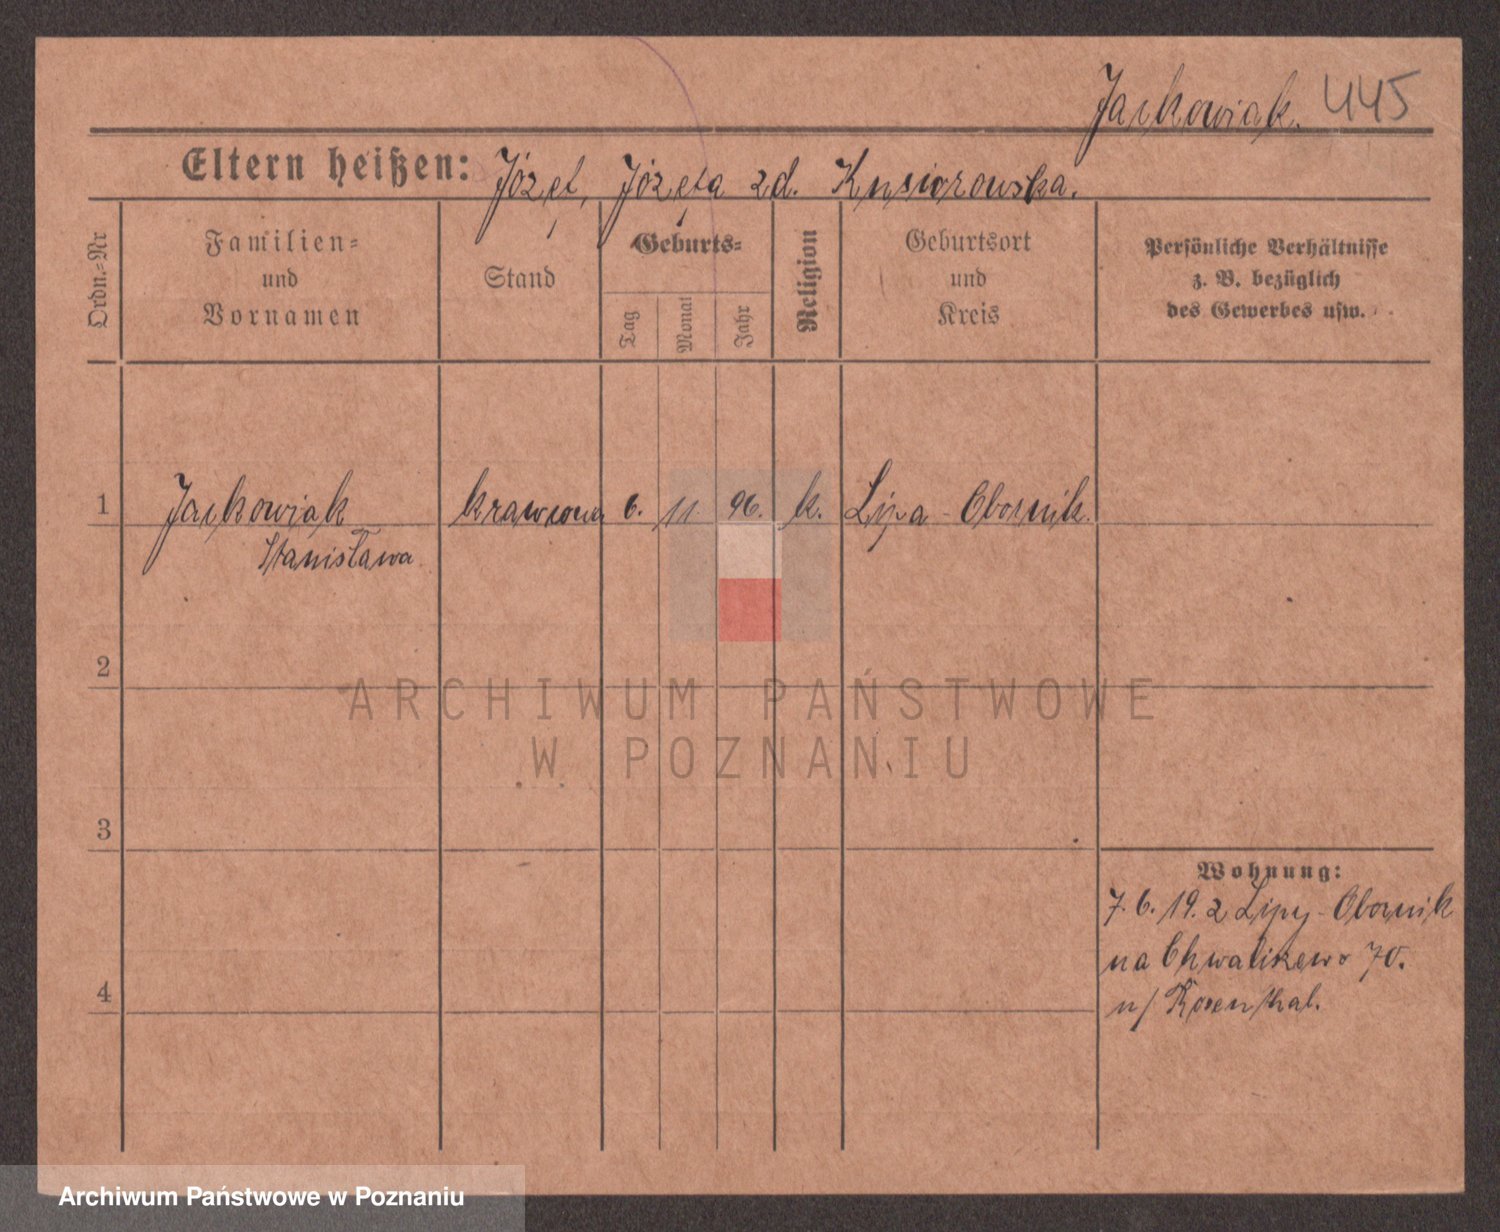 Jackowiak. 445
Eltern heißen: Józef, Józefa zd. Kusiorowska.
Ordn.-Nr
Familien-
und
Vornamen
Stand
Geburts-
Tag
Monat
Jahr
Religion
Geburtsort
und
Kreis
Persönliche Verhältnisse
z. B. bezüglich
des Gewerbes usw.
1 Jackowiak krawcowa 6. 11. 96. k. Lipa - Obornik.
Stanisława
2
ARCHIWUM PAŃSTWOWE
W POZNANIU
3
Wohnung:
7. 6. 19. z Lipy - Obornik
na Chwaliszewo 70.
4
u/ Rosenthal.
Archiwum Państwowe w Poznaniu